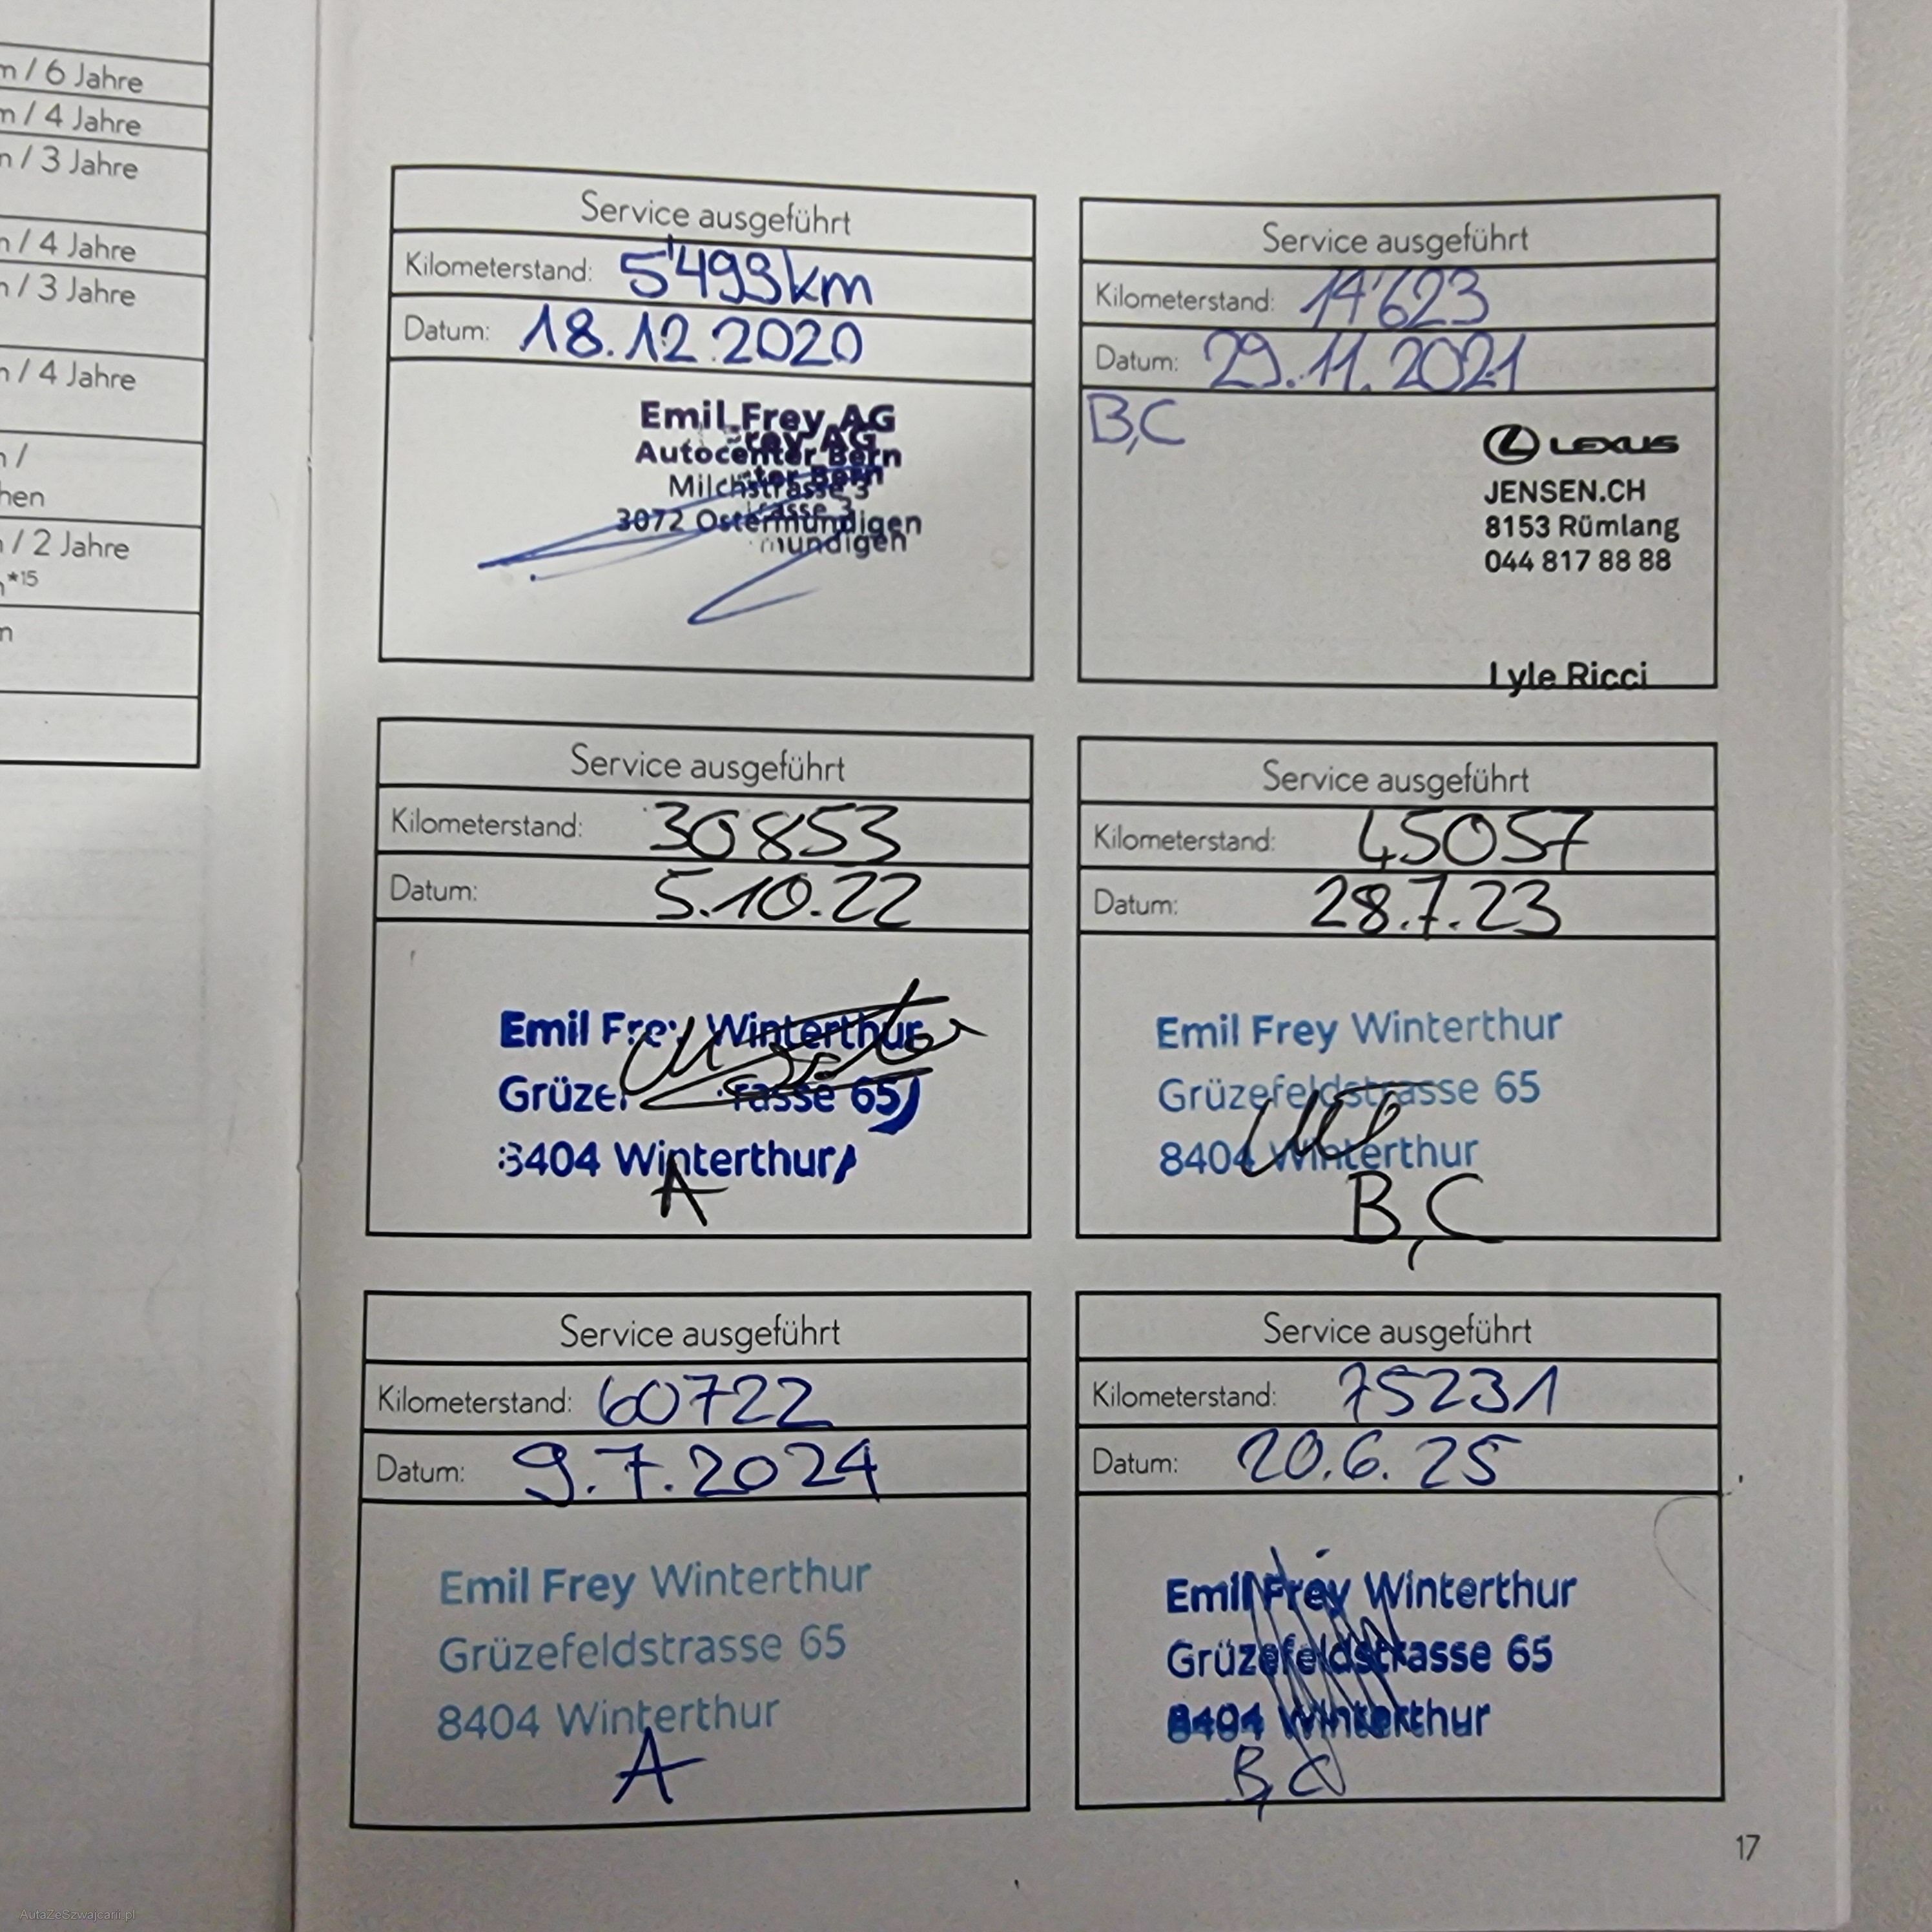 m / 6 Jahre
m / 4 Jahre
n / 3 Jahre
n / 4 Jahre
n / 3 Jahre
n / 4 Jahre
n /
hen
n / 2 Jahre
*15
n
Service ausgeführt
Kilometerstand: 5'499km
Datum: 18.12.2020
Emil Frey AG
Frey AG
Autocenter Bern
ter Bern
Milchstrasse 3
rasse 3
3072 Ostermundigen
mundigen
Service ausgeführt
Kilometerstand: 14'623
Datum: 29.11.2021
B,C
LEXUS
JENSEN.CH
8153 Rümlang
044 817 88 88
Lyle Ricci
Service ausgeführt
Kilometerstand: 30853
Datum: 5.10.22
Emil Frey Winterthur
Grüze rasse 65
8404 Winterthur
A
Service ausgeführt
Kilometerstand: 45057
Datum: 28.7.23
Emil Frey Winterthur
Grüzefeldstrasse 65
8404 Winterthur
B,C
Service ausgeführt
Kilometerstand: 60722
Datum: 9.7.2024
Emil Frey Winterthur
Grüzefeldstrasse 65
8404 Winterthur
A
Service ausgeführt
Kilometerstand: 75231
Datum: 20.6.25
Emil Frey Winterthur
Grüzefeldstrasse 65
8404 Winterthur
B,C
17
AutaZeSzwajcarii.pl